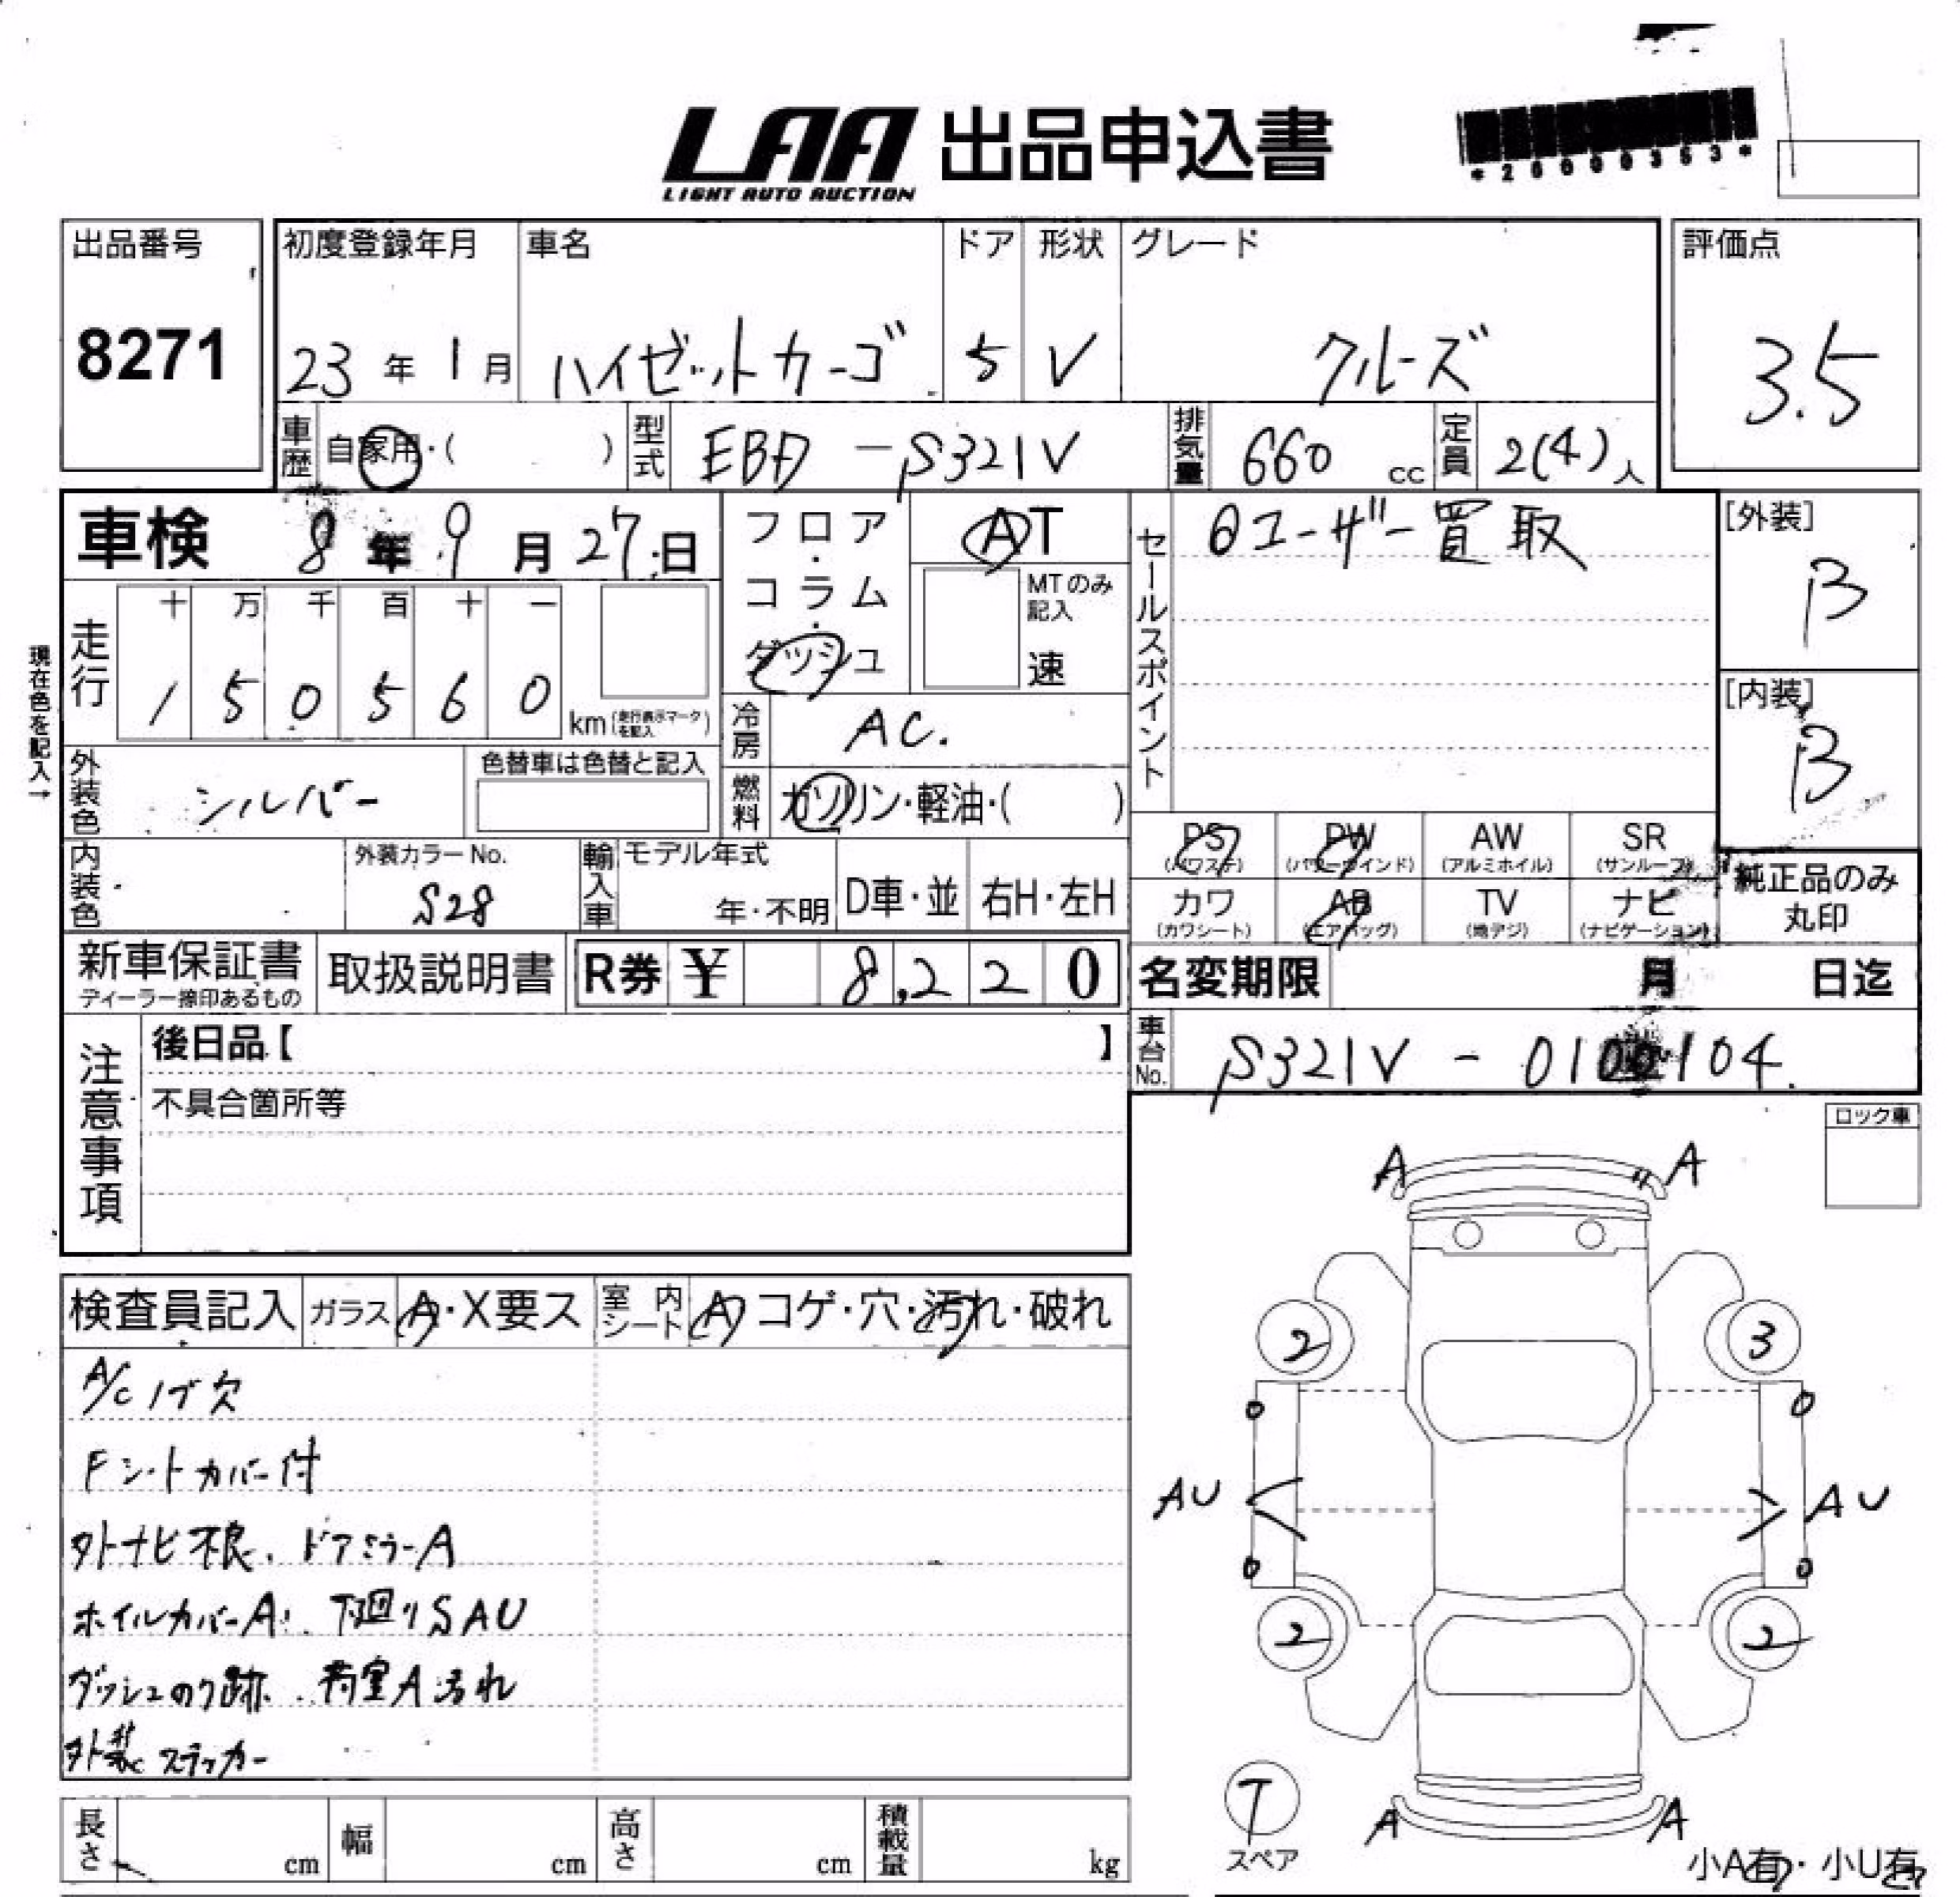 LAA 出品申込書
LIGHT AUTO AUCTION
*20000353*
出品番号
8271
初度登録年月
23年1月
車名
ハイゼットカーゴ
ドア
5
形状
V
グレード
クルーズ
評価点
3.5
車歴 自家用・( )
型式 EBD-S321V
排気量 660 cc
定員 2(4)人
車検 8年9月27日
現在色を記入→
走行
十 万 千 百 十 一
1 5 0 5 6 0
km(走行表示マークを記入)
フロア・コラム・ダッシュ
AT
MTのみ記入
速
冷房 AC.
燃料 ガソリン・軽油・( )
外装色 シルバー
色替車は色替と記入
内装色
外装カラーNo.
S28
輸入車
モデル年式
年・不明
D車・並
右H・左H
セールスポイント
ユーザー買取
[外装]
B
[内装]
B
PS (パワステ)
PW (パワーウインド)
AW (アルミホイル)
SR (サンルーフ)
カワ (カワシート)
AB (エアバッグ)
TV (地デジ)
ナビ (ナビゲーション)
純正品のみ
丸印
新車保証書
ディーラー捺印あるもの
取扱説明書
R券 ¥ 8,220
名変期限 月 日迄
車台No. S321V-0100104
注意事項
後日品【 】
不具合箇所等
ロック車
検査員記入
ガラス A・X要ス
室内シート A コゲ・穴・汚れ・破れ
A/Cノブ欠
Fシートカバー付
外ナビ不良、ドアミラーA
ホイルカバーA、下廻りSAU
ダッシュのり跡、荷室A汚れ
外装ステッカー
A A
2 3
AU AU
2 2
T
スペア
A A
小A有・小U有
長さ cm
幅 cm
高さ cm
積載量 kg